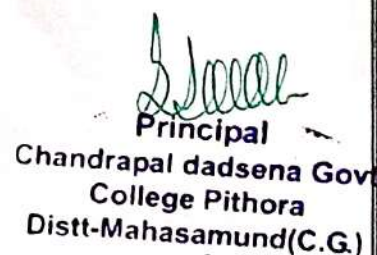 Principal
Chandrapal dadsena Govt
College Pithora
Distt-Mahasamund(C.G.)